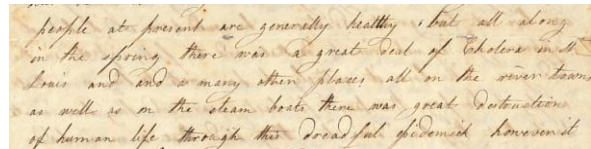 people at present are generally healthy, but all along
in the spring there was a great deal of Cholera in St
Louis and and a many other places all on the river towns
as well as on the steam boats there was great destruction
of human life through this dreadful Epidemick however it